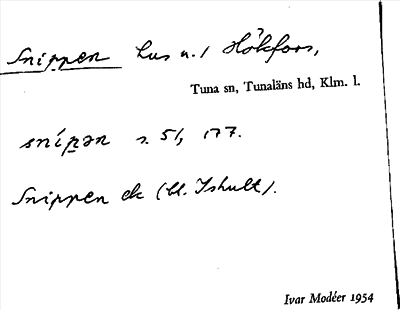 Snippen hus u. / Hökfors,
Tuna sn, Tunaläns hd, Klm. l.
snípən s. 51, 177.
Snippen ek (bl. Ishult).
Ivar Modéer 1954